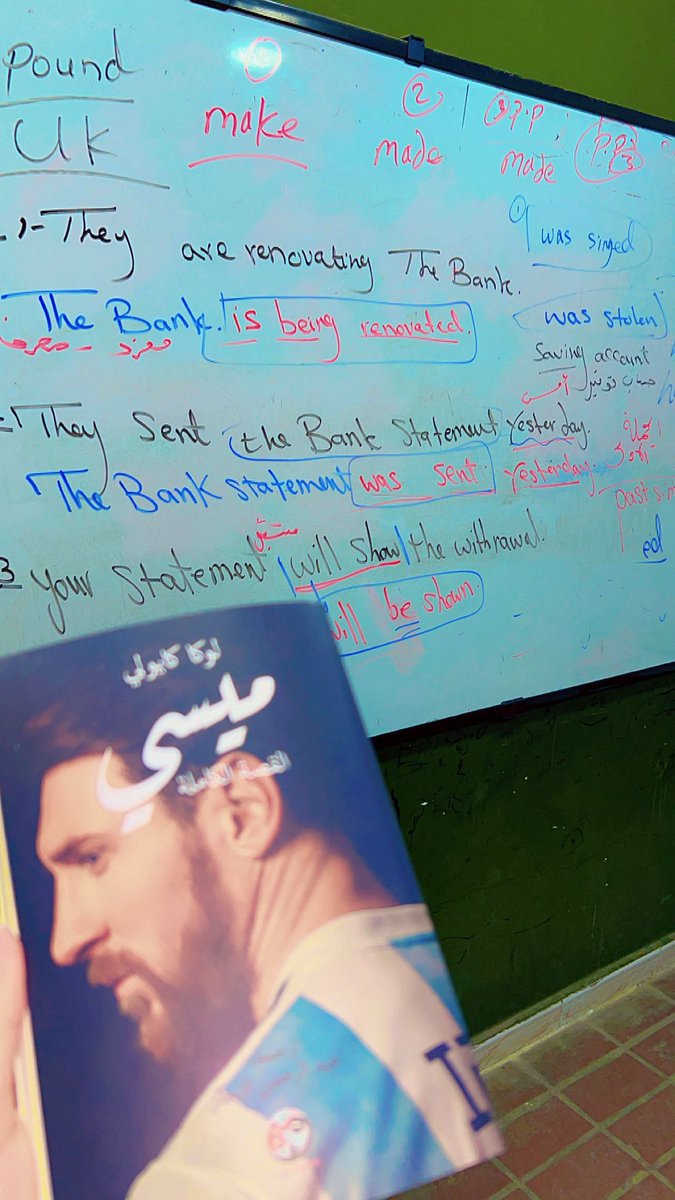 pound
UK
① make ② made ③ P.P made P.P 3
① was singed
1- They are renovating The Bank.
The Bank. is being renovated.
مفرد
was stolen
Saving account
حساب توفير
They Sent the Bank Statement yesterday.
أمس
The Bank statement was sent yesterday.
past sim
ed
مستقبل
3 your statement will show the withrawal.
will be shown.
لوكا كايولي
ميسي
القصة الكاملة